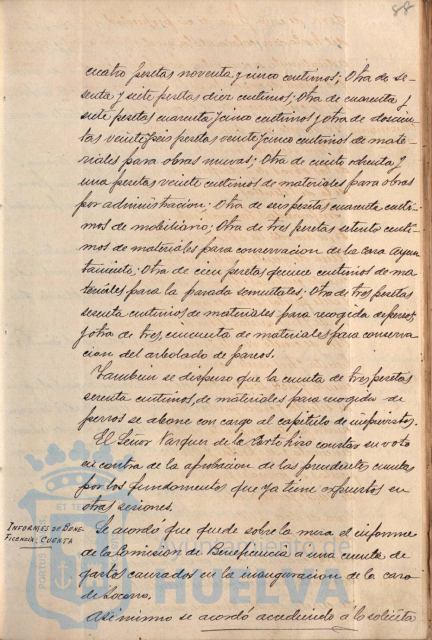 88
cuatro pesetas noventa y cinco centimos; Otra de se-
senta y siete pesetas diez centimos; Otra de cuarenta y
siete pesetas cuarenta y cinco centimos y otra de doscien-
tas veinte y seis pesetas veinte y cinco centimos de mate-
riales para obras nuevas; Otra de ciento ochenta y
una pesetas veinte centimos de materiales para obras
por administracion; Otra de seis pesetas cuarenta centi-
mos de mobiliario; Otra de tres pesetas setenta centi-
mos de materiales para conservacion de la casa Ayun-
tamiento; Otra de cien pesetas quince centimos de ma-
teriales para la parada sementales; Otra de tres pesetas
sesenta centimos de materiales para recogida de perros,
y otra de tres, cincuenta de materiales para conserva-
cion del arbolado de paseos.
Tambien se dispuso que la cuenta de tres pesetas
sesenta centimos, de materiales para recogida de
perros se abone con cargo al capitulo de imprevistos.
El Señor Vazquez de la Corte hizo constar su voto
en contra de la aprobacion de las precedentes cuentas
por los fundamentos que ya tiene expuestos en
otras sesiones.
INFORMES DE BENE-
FICENCIA, CUENTA
Se acordó que quede sobre la mesa el informe
de la Comision de Beneficencia a una cuenta de
gastos causados en la inauguracion de la casa
de Socorro.
Asi mismo se acordó accediendo a lo solicita
Ayuntamiento
HUELVA
PORTUS
ET TE